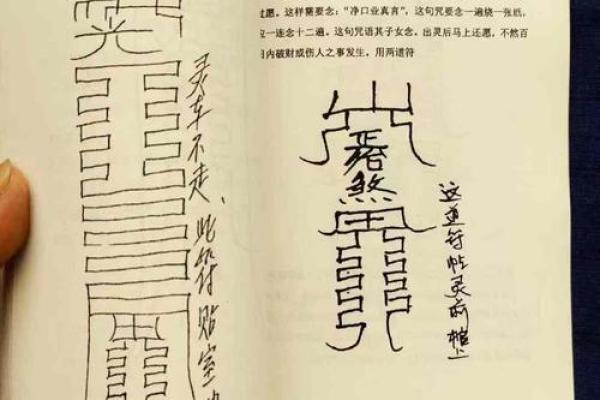 过愿。这样需要念：“净口业真言”，这句咒要念一遍烧一张纸，
应一连念十二遍。这句咒语其子女念。出灵后马上还愿，不然百
日内破财或伤人之事发生。用两道符
光
灵车不走、此符贴室
煞
这道符帖灵前棺上